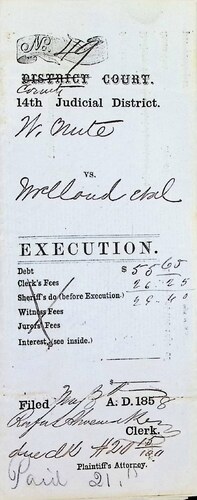 No. 49
DISTRICT COURT.
County
14th Judicial District.
W. Nute
vs.
Welland et al
EXECUTION.
Debt $ 55 65
Clerk's Fees 26.25
Sheriff's do (before Execution.)
Witness Fees
Jurors' Fees
Interest, (see inside.)
Filed May A. D. 1858
Clerk.
due Clk $20 15/100
Plaintiff's Attorney.
Paid 21.